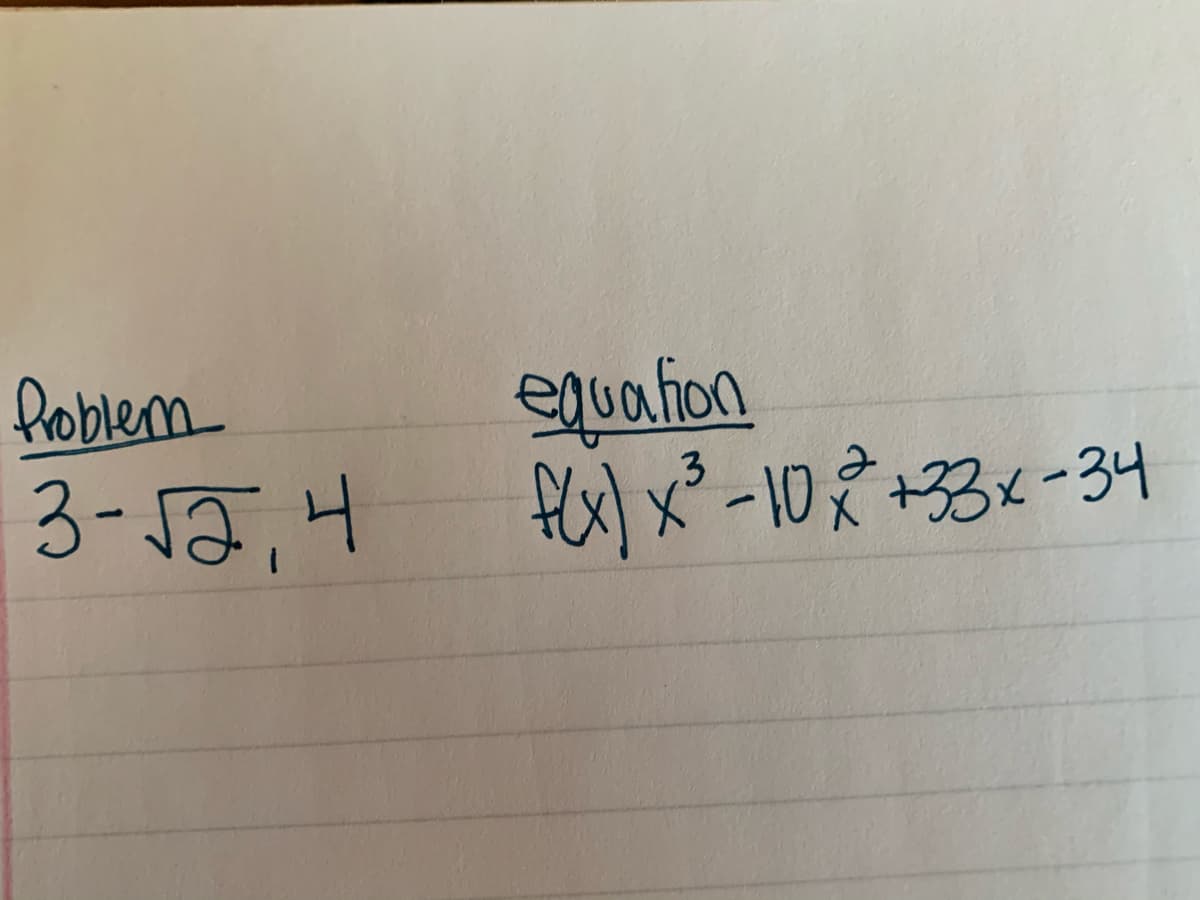 Problem equation
3-√2, 4 f(x) x³-10x²+33x-34